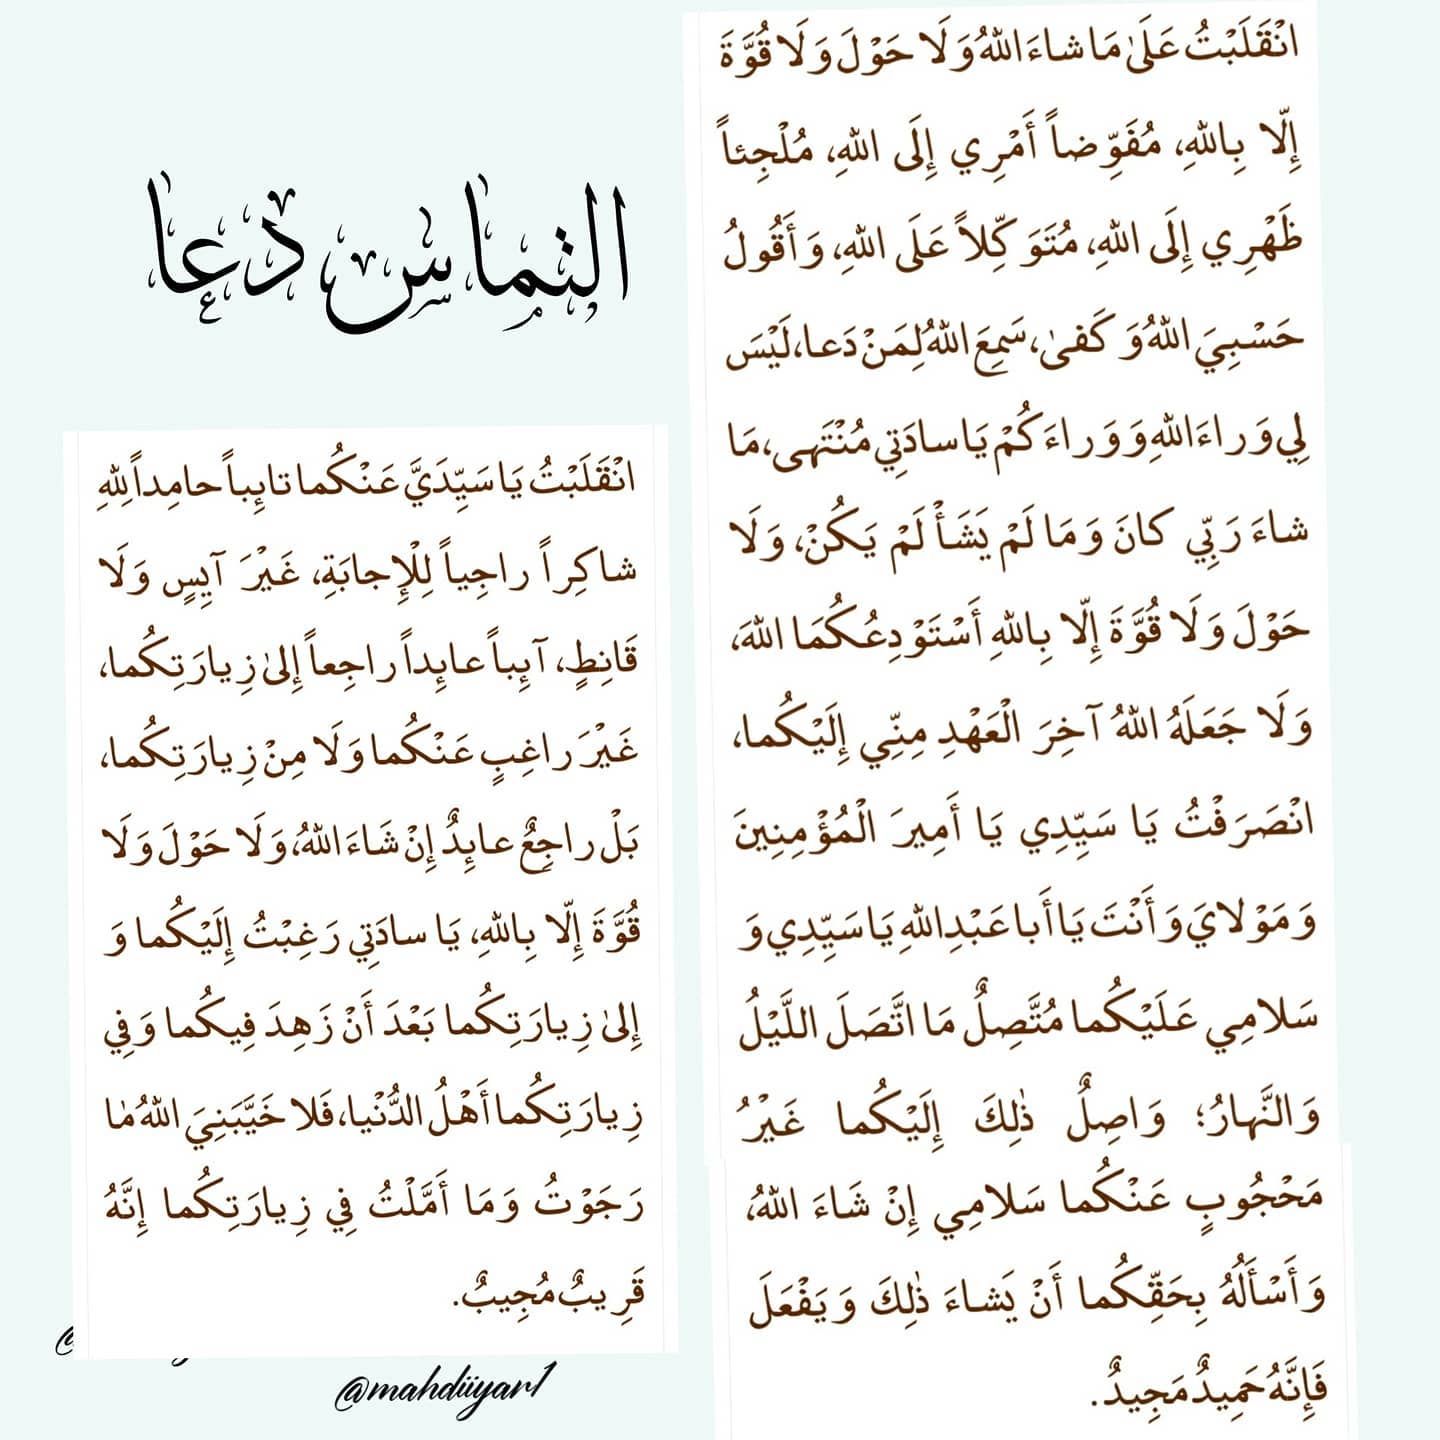 انْقَلَبْتُ عَلَىٰ مَا شاءَ اللّٰهُ وَلَا حَوْلَ وَلَا قُوَّةَ
إِلّا بِاللّٰهِ، مُفَوِّضاً أَمْرِي إِلَى اللّٰهِ، مُلْجِئاً
ظَهْرِي إِلَى اللّٰهِ، مُتَوَكِّلاً عَلَى اللّٰهِ، وَأَقُولُ
حَسْبِيَ اللّٰهُ وَكَفىٰ، سَمِعَ اللّٰهُ لِمَنْ دَعا، لَيْسَ
لِي وَراءَ اللّٰهِ وَوَراءَكُمْ يَا سادَتِي مُنْتَهى، مَا
شاءَ رَبِّي كانَ وَمَا لَمْ يَشَأْ لَمْ يَكُنْ، وَلَا
حَوْلَ وَلَا قُوَّةَ إِلّا بِاللّٰهِ أَسْتَوْدِعُكُمَا اللّٰهَ،
وَلَا جَعَلَهُ اللّٰهُ آخِرَ الْعَهْدِ مِنِّي إِلَيْكُما،
انْصَرَفْتُ يَا سَيِّدِي يَا أَمِيرَ الْمُؤْمِنِينَ
وَمَوْلايَ وَأَنْتَ يَا أَبا عَبْدِاللّٰهِ يَا سَيِّدِي وَ
سَلامِي عَلَيْكُما مُتَّصِلٌ مَا اتَّصَلَ اللَّيْلُ
وَالنَّهارُ؛ وَاصِلٌ ذٰلِكَ إِلَيْكُما غَيْرُ
مَحْجُوبٍ عَنْكُما سَلامِي إِنْ شَاءَ اللّٰهُ،
وَأَسْأَلُهُ بِحَقِّكُما أَنْ يَشاءَ ذٰلِكَ وَيَفْعَلَ
فَإِنَّهُ حَمِيدٌ مَجِيدٌ.
التماس دعا
انْقَلَبْتُ يَا سَيِّدَيَّ عَنْكُما تائِباً حامِداً لِلّٰهِ
شاكِراً راجِياً لِلْإِجابَةِ، غَيْرَ آيِسٍ وَلَا
قَانِطٍ، آئِباً عائِداً راجِعاً إِلىٰ زِيارَتِكُما،
غَيْرَ راغِبٍ عَنْكُما وَلَا مِنْ زِيارَتِكُما،
بَلْ راجِعٌ عائِدٌ إِنْ شَاءَ اللّٰهُ، وَلَا حَوْلَ وَلَا
قُوَّةَ إِلّا بِاللّٰهِ، يَا سادَتِي رَغِبْتُ إِلَيْكُما وَ
إِلىٰ زِيارَتِكُما بَعْدَ أَنْ زَهِدَ فِيكُما وَفِي
زِيارَتِكُما أَهْلُ الدُّنْيا، فَلا خَيَّبَنِيَ اللّٰهُ مٰا
رَجَوْتُ وَمَا أَمَّلْتُ فِي زِيارَتِكُما إِنَّهُ
قَرِيبٌ مُجِيبٌ.
@mahdiiyar1